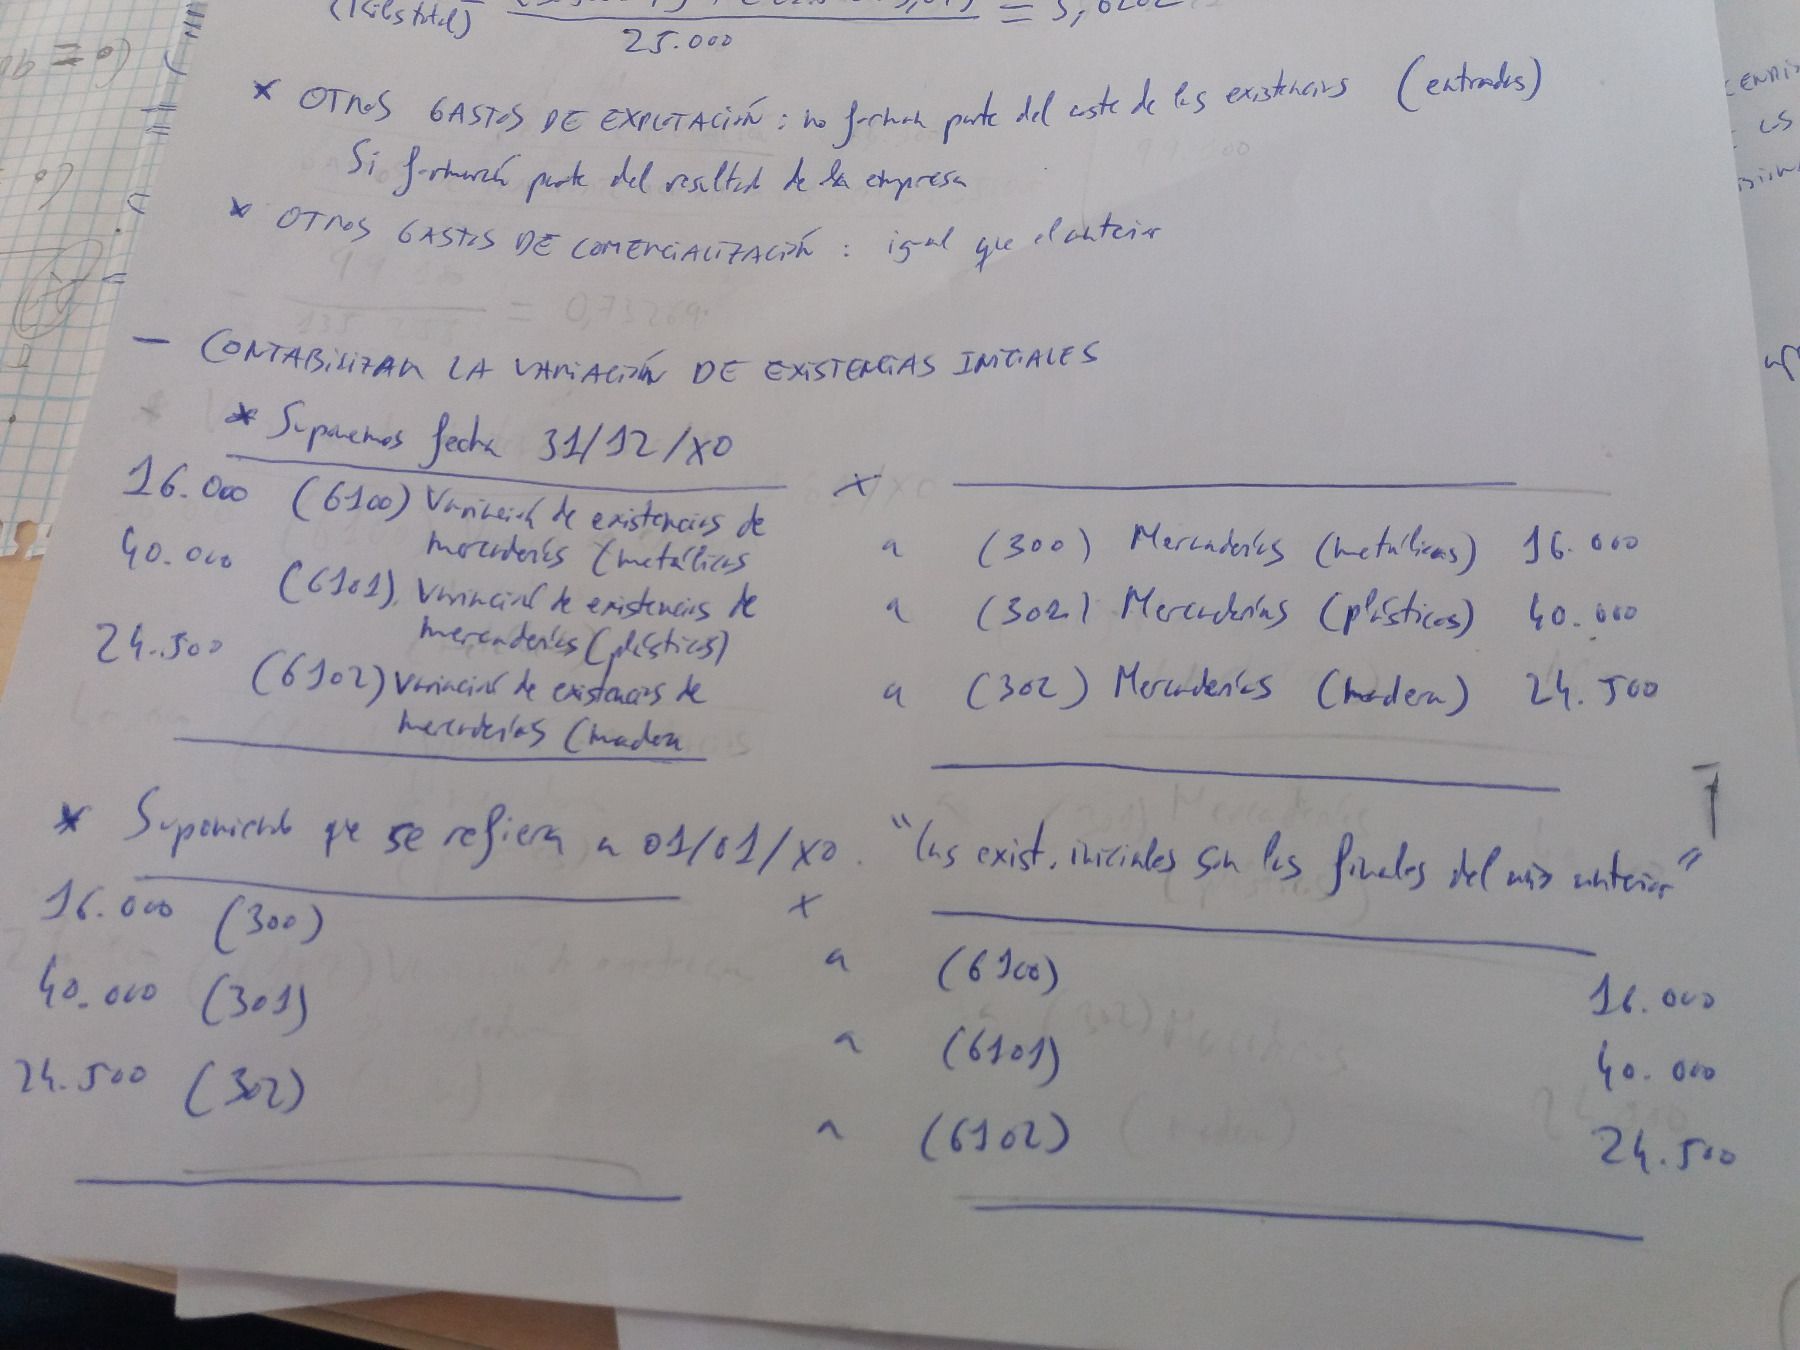 (Kils total)
25.000
* OTROS GASTOS DE EXPLOTACIÓN: no forman parte del coste de las existencias (entradas)
Si formarán parte del resultado de la empresa
* OTROS GASTOS DE COMERCIALIZACIÓN: igual que el anterior
- CONTABILIZAR LA VARIACIÓN DE EXISTENCIAS INICIALES
* Suponemos fecha 31/12/X0
x
16.000 (6100) Variación de existencias de
mercaderías (metálicas a (300) Mercaderías (metálicas) 16.000
40.000 (6101) Variación de existencias de a (302) Mercaderías (plásticos) 40.000
mercaderías (plásticos)
24.500 (6102) Variación de existencias de a (302) Mercaderías (madera) 24.500
mercaderías (madera
* Suponiendo que se refiera a 01/01/X0. "las exist. iniciales son las finales del año anterior"
x
16.000 (300) a (6100) 16.000
40.000 (301) a (6101) 40.000
24.500 (302) a (6102) 24.500